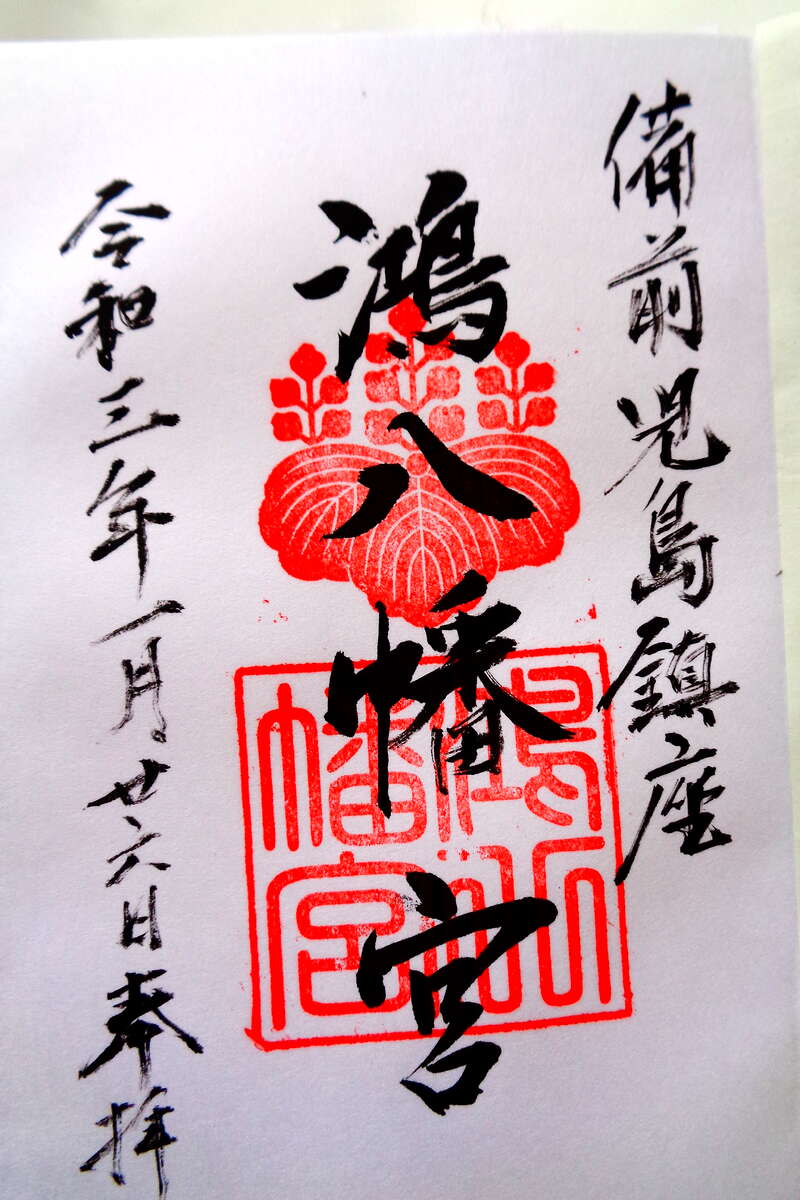 備前児島鎮座
鴻八幡宮
鴻八幡宮
令和三年一月廿六日奉拝